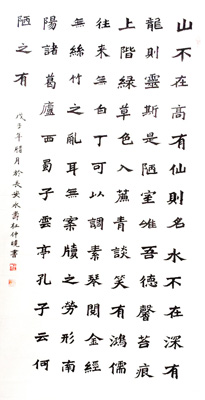 山不在高有仙則名水不在深有
龍則靈斯是陋室唯吾德馨苔痕
上階綠草色入簾青談笑有鴻儒
往來無白丁可以調素琴閱金經
無絲竹之亂耳無案牘之勞形南
陽諸葛廬西蜀子雲亭孔子云何
陋之有
戊子年腊月於長安書